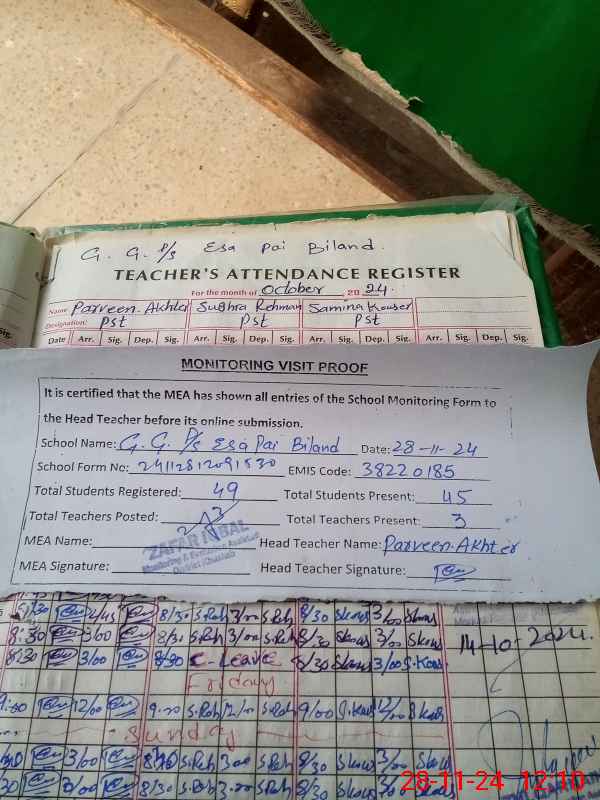 G. G. P/S Esa Pai Biland.
TEACHER'S ATTENDANCE REGISTER
For the month of October 2024.
Name Parveen. Akhter Sughra Rehman Samina Kouser
Designation: Pst Pst Pst
Date Arr. Sig. Dep. Sig. Arr. Sig. Dep. Sig. Arr. Sig. Dep. Sig. Arr. Sig. Dep. Sig.
MONITORING VISIT PROOF
It is certified that the MEA has shown all entries of the School Monitoring Form to
the Head Teacher before its online submission.
School Name: G. G. P/s Esa Pai Biland Date: 28-11-24
School Form No: EMIS Code: 38220185
Total Students Registered: 49 Total Students Present: 45
Total Teachers Posted: 3 Total Teachers Present: 3
MEA Name: Head Teacher Name: Parveen. Akhter
MEA Signature: Head Teacher Signature:
ZAFAR IQBAL
Monitoring & Evaluation Assistant
District Khushab
8:30 3/00 8/30 S.Reh 3/00 S.Reh 8/30 Skous 3/00 Skous
14-10-2024.
8:30 3/00 8/30 C. Leave 8/30 Skous 3/00 S.Kous
Friday
9:00 S.Reh 12/00 S.Reh 9/00 S.Kous 12/00 S Kous
Sunday
3/00 S.Reh 3:00 S.Reh 8/30 Skous 3/00 Skous
8/30 S.Reh 3:00 S.Reh 8/30 Skous
28-11-24 12:10